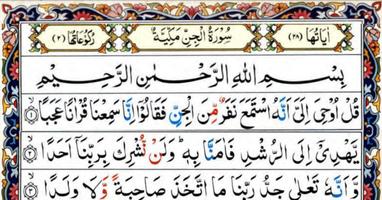 اٰيَاتُهَا (٢٨) سُوْرَةُ الْجِنِّ مَكِّيَّةٌ رُكُوْعَاتُهَا (٢)
بِسْمِ اللّٰهِ الرَّحْمٰنِ الرَّحِيْمِ
قُلْ اُوْحِيَ اِلَيَّ اَنَّهُ اسْتَمَعَ نَفَرٌ مِّنَ الْجِنِّ فَقَالُوْۤا اِنَّا سَمِعْنَا قُرْاٰنًا عَجَبًا ۙ‏﴿١﴾
يَّهْدِيْۤ اِلَى الرُّشْدِ فَاٰمَنَّا بِهٖ ؕ وَلَنْ نُّشْرِكَ بِرَبِّنَاۤ اَحَدًا ۙ‏﴿٢﴾
وَّاَنَّهٗ تَعٰلٰى جَدُّ رَبِّنَا مَا اتَّخَذَ صَاحِبَةً وَّلَا وَلَدًا ۙ‏﴿٣﴾